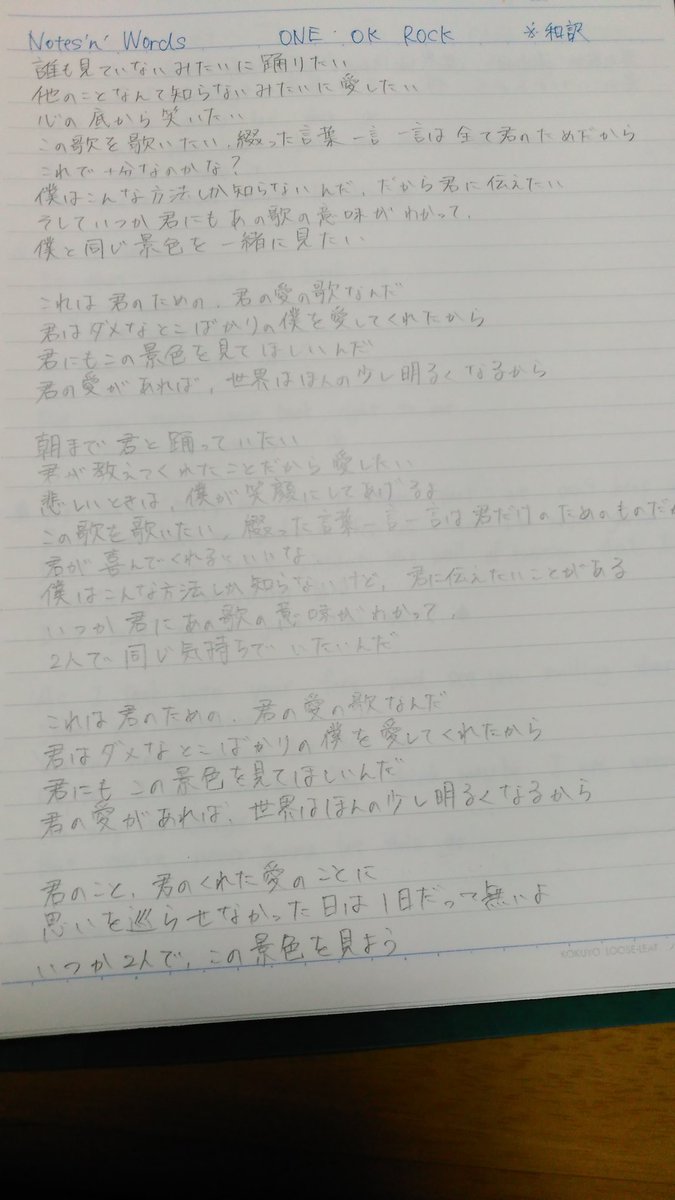 Notes'n' Words ONE OK ROCK ※和訳
誰も見ていないみたいに踊りたい
他のことなんて知らないみたいに愛したい
心の底から笑いたい
この歌を歌いたい、綴った言葉一言一言は全て君のためだから
これで十分なのかな?
僕はこんな方法しか知らないんだ、だから君に伝えたい
そしていつか君にもあの歌の意味がわかって、
僕と同じ景色を一緒に見たい
これは君のための、君の愛の歌なんだ
君はダメなとこばかりの僕を愛してくれたから
君にもこの景色を見てほしいんだ
君の愛があれば、世界はほんの少し明るくなるから
朝まで君と踊っていたい
君が教えてくれたことだから愛したい
悲しいときは、僕が笑顔にしてあげるよ
この歌を歌いたい、綴った言葉一言一言は君だけのためのものだ
君が喜んでくれるといいな
僕はこんな方法しか知らないけど、君に伝えたいことがある
いつか君にあの歌の意味がわかって、
2人で同じ気持ちでいたいんだ
これは君のための、君の愛の歌なんだ
君はダメなとこばかりの僕を愛してくれたから
君にもこの景色を見てほしいんだ
君の愛があれば、世界はほんの少し明るくなるから
君のこと、君のくれた愛のことに
思いを巡らせなかった日は1日だって無いよ
いつか2人で、この景色を見よう
KOKUYO LOOSE-LEAF